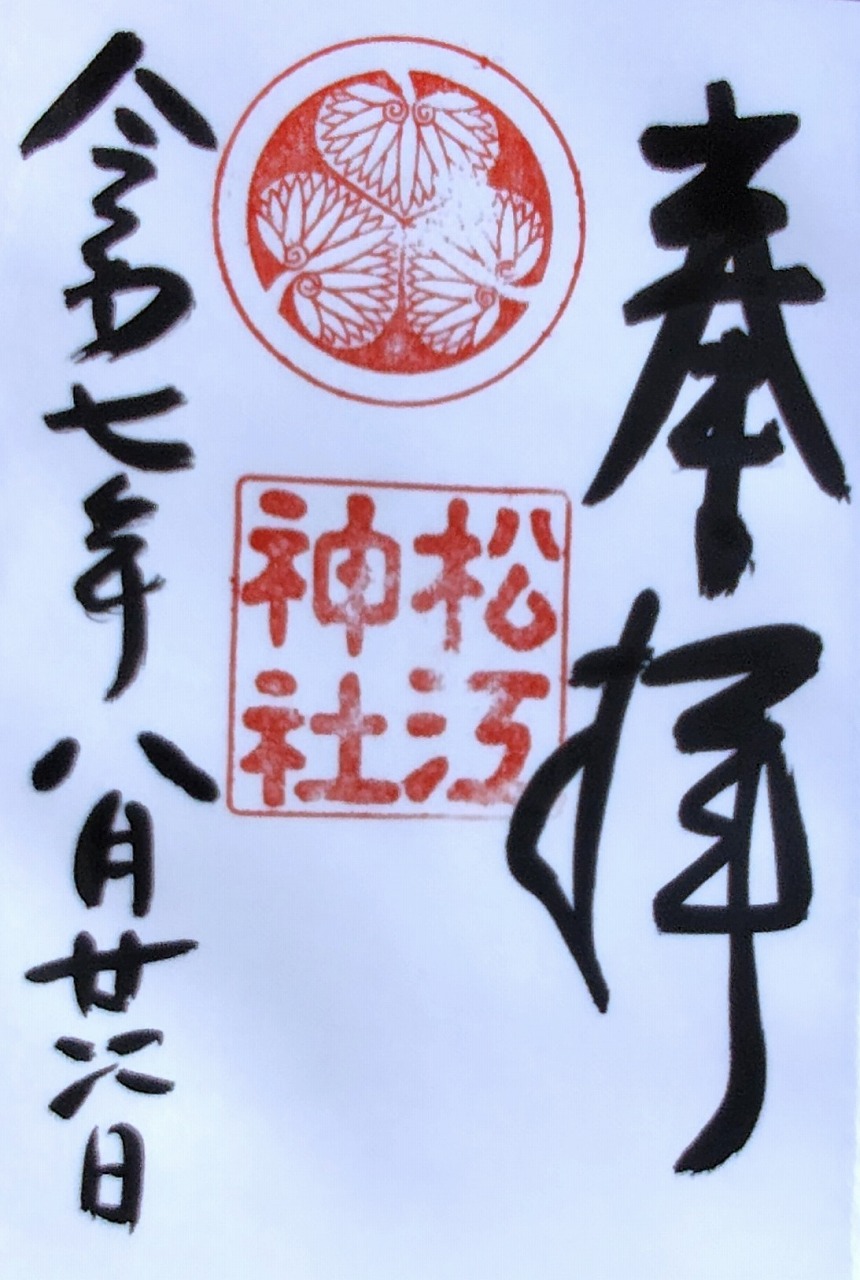 奉拝
松江
神社
令和七年八月廿六日